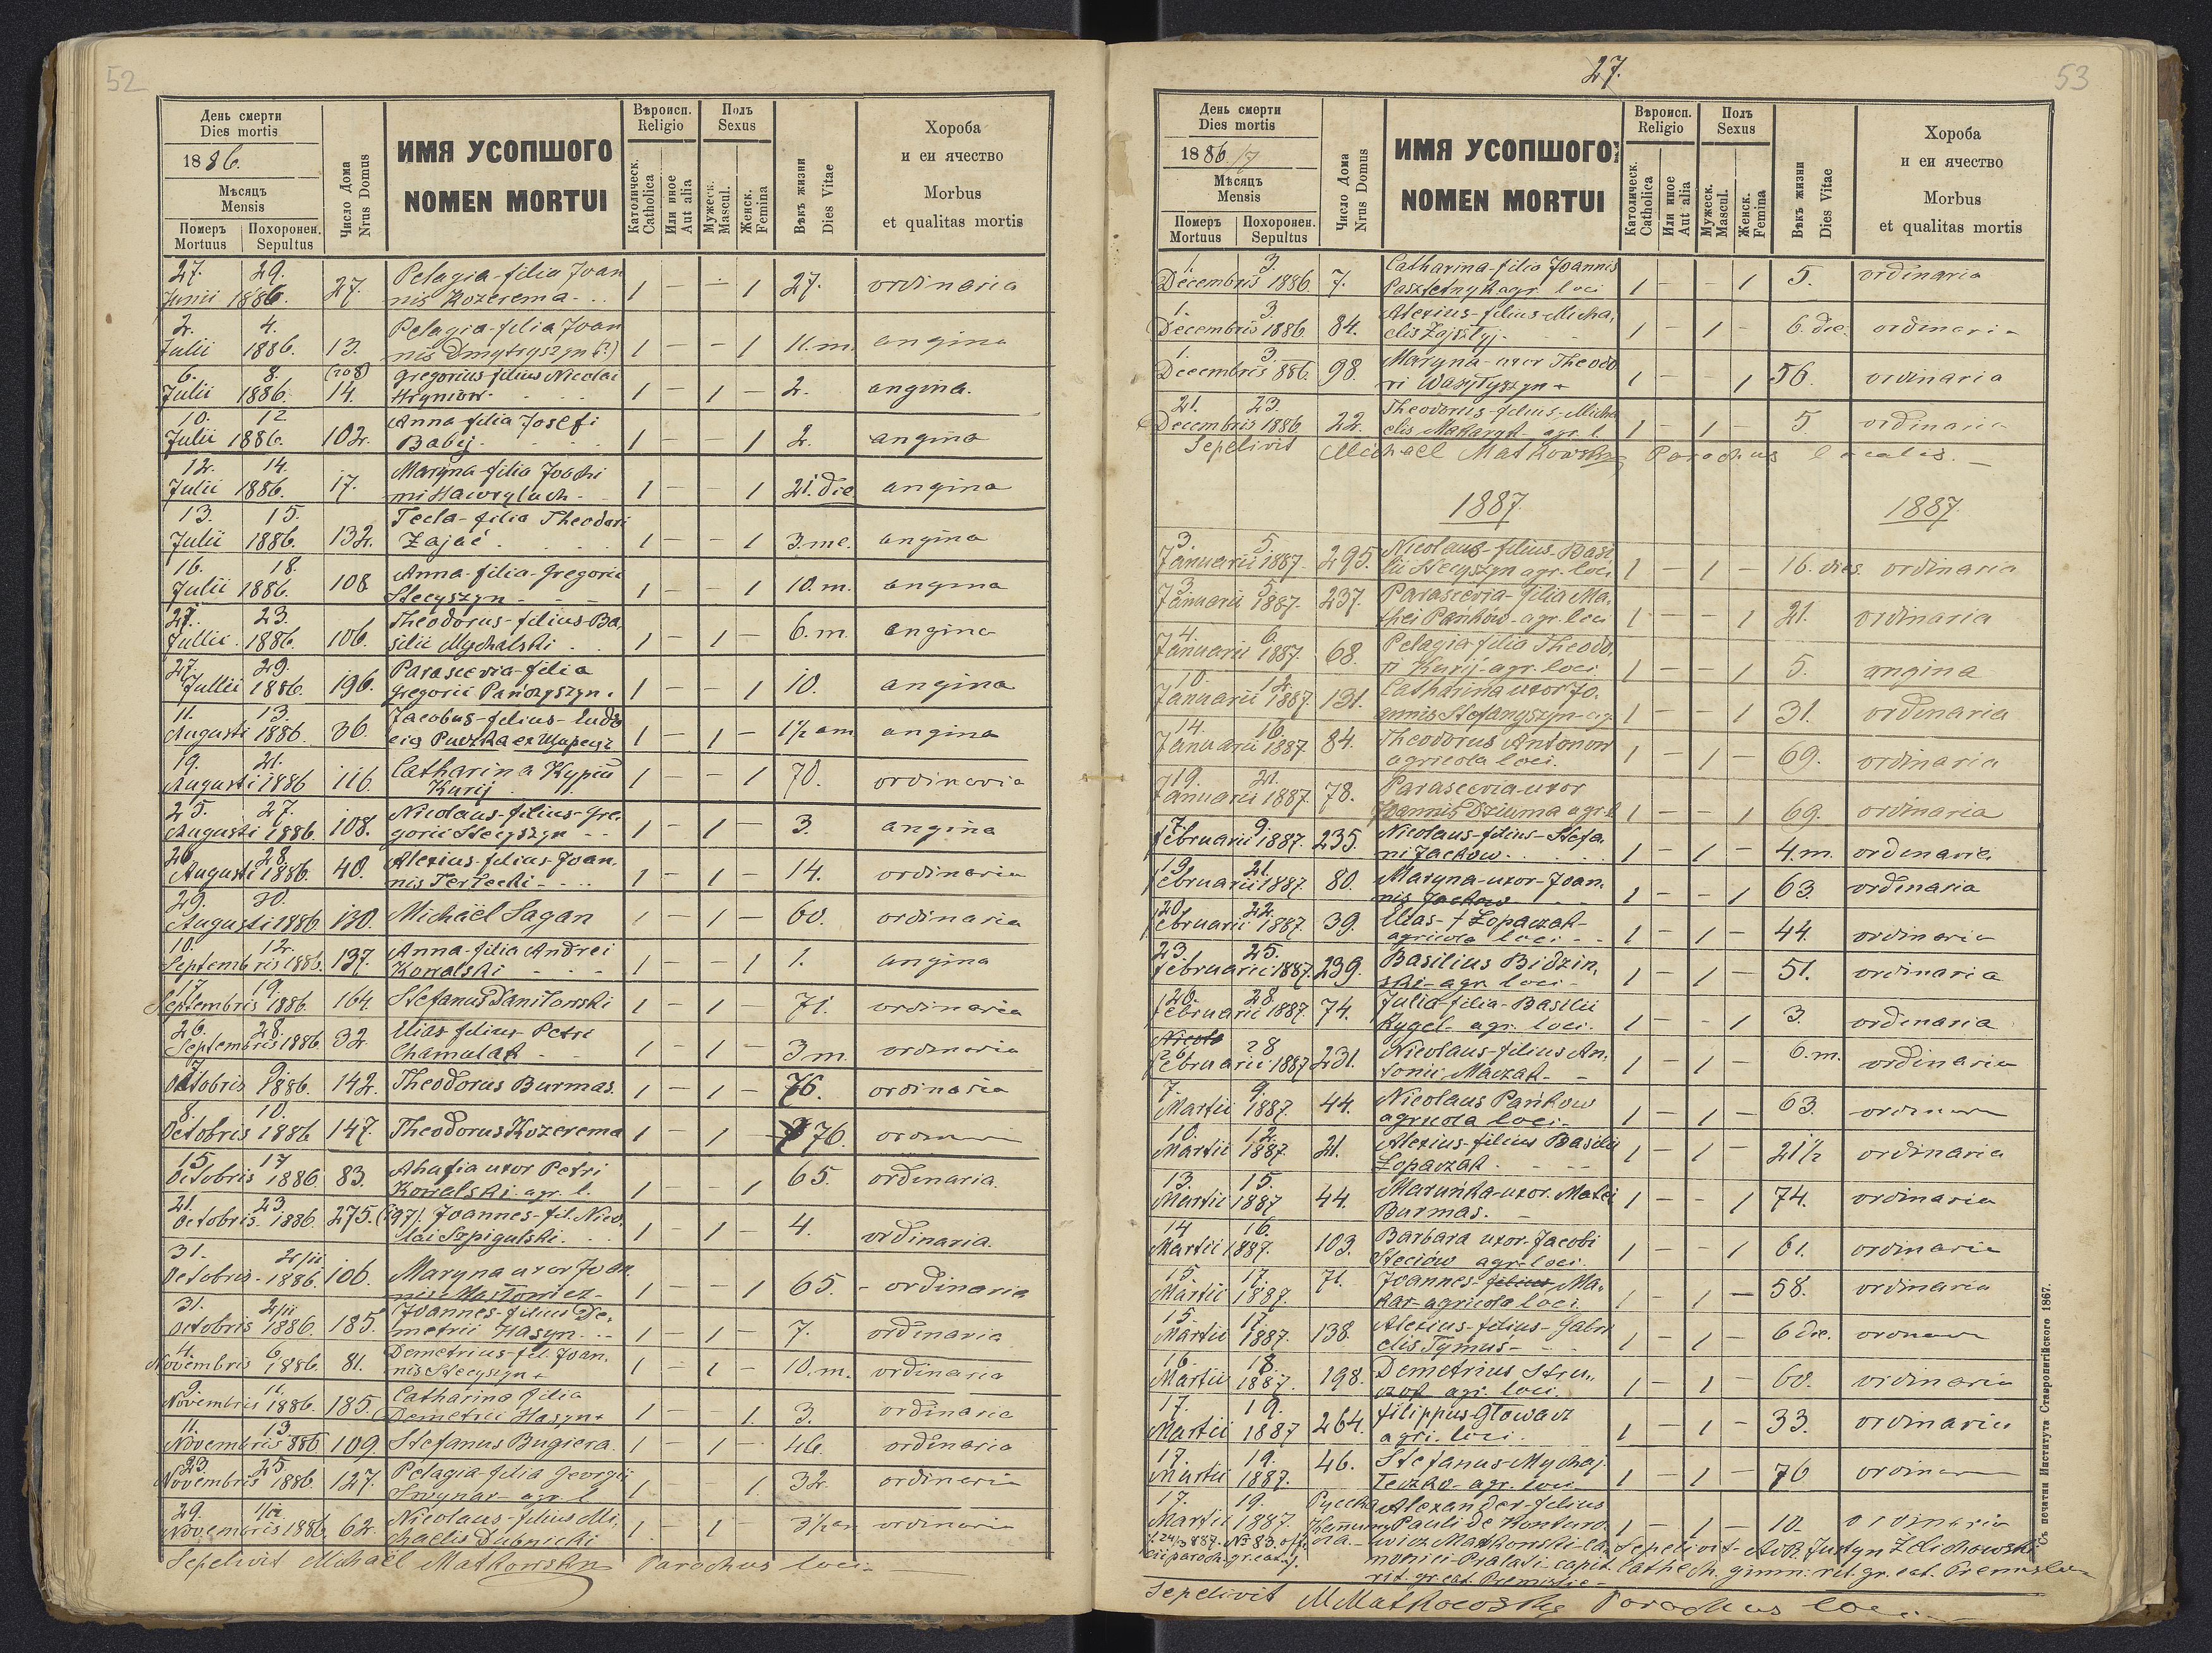 52
День смерти
Dies mortis
1886.
Мѣсяцъ
Mensis
Померъ Похоронен.
Mortuus Sepultus
Число Дома
Nrus Domus
ИМЯ УСОПШОГО
NOMEN MORTUI
Вѣроисп.
Religio
Католическ.
Catholica
Или иное
Aut alia
Полъ
Sexus
Мужеск.
Mascul.
Женск.
Femina
Вѣкъ жизни
Dies Vitae
Хороба
и еи ячество
Morbus
et qualitas mortis
27. 29. Pelagia-filia Joan
Junii 1886. 27. nis Kozerema - 1 - - 1 27. ordinaria
2. 4. Pelagia-filia Joan
Julii 1886. 13. nis Dmytryszyn (?) 1 - - 1 11.m. angina
6. 8. (208) Gregorius filius Nicolai
Julii 1886. 14. Hryniow 1 - 1 - 2. angina.
10. 12 Anna filia Josefi
Julii 1886. 102. Babij 1 - - 1 2. angina
12. 14. Maryna-filia Joachi
Julii 1886. 17. mi Hawryluch - 1 - - 1 21. die angina
13. 15. Tecla-filia Theodori
Julii 1886. 132. Zając 1 - - 1 3.me. angina
16. 18. Anna-filia-Gregorii
Julii 1886. 108 Stecyszyn - 1 - - 1 10.m. angina
21. 23. Theodorus-filius-Ba,
Jullii 1886. 106. silii Mychalski 1 - 1 - 6.m. angina
27. 29. Parascevia-filia
Jullii 1886. 196. Gregorii Pańczyszyn. 1 - - 1 10. angina
11. 13. Jacobus-filius-Eudo
Augusti 1886. 36. cia Puczka ex 1 - 1 - 1½ am angina
19. 21. Catharina Курій
Augusti 1886 116. Kurij 1 - - 1 70. ordinaria
25. 27. Nicolaus-filius-Gre,
Augusti 1886. 108. gorii Stecyszyn - - 1 - 1 - 3. angina
26 28. Alexius-filius-Joan,
Augusti 1886. 40. nis Terlecki - 1 - 1 - 14. ordinaria
29. 30.
Augusti 1886. 130. Michäel Sagan 1 - 1 - 60. ordinaria
10. 12. Anna-filia Andrei
Septembris 1886. 137. Kowalski - 1 - - 1 1. angina
17. 19.
Septembris 1886. 164. Stefanus Danilowski 1 - 1 71. ordinaria
26. 28. Elias filius Petri
Septembris 1886. 32. Chamulak 1 - 1 - 3 m. ordinaria
7. 9.
Octobris 1886. 142. Theodorus Burmas. 1 - 1 - 76. ordinaria
8. 10.
Octobris 1886 147. Theodorus Kozerema 1 - 1 - 76. ordinaria
15 17 Ahafia uxor Petri
Octobris 1886 83. Kowalski agr. l. 1 - - 1 65. ordinaria.
21. 23.
Octobris 1886. 275. (197). Joannes-fil. Nico,
lai Szpigulski. 1 - 1 - 4. ordinaria.
31. 2/11 Maryna uxor Joan
Octobris - 1886. 106. nis Mastowiez - 1 - - 1 65. - ordinaria
31. 2/11 Joannes-filius De,
Octobris 1886. 185. metrii Hasyn 1 - 1 - 7. ordinaria
4. 6. Demetrius-fil. Joan.
Novembris 1886. 81. nis Stecyszyn + 1 - 1 - 10.m. ordinaria
9. 11. Catharina filia
Novembris 1886. 185. Demetrii Hasyn + 1 - 1. 3. ordinaria
11. 13.
Novembris 886 109. Stefanus Bugiera. 1 - 1 - 46. ordinaria
23. 25 Pelagia-filia Georgii
Novembris 1886. 127. Smynar - agr. l 1 - 1. 32. ordinaria
29. 1/12 Nicolaus-filius Mi,
Novembris 1886 62. chaelis Dubnicki 1. - 1 - 3½ an ordinaria
Sepelivit Michaël Matkowsky Parochus loci -
27.
53
День смерти
Dies mortis
1886/7
Мѣсяцъ
Mensis
Померъ Похоронен.
Mortuus Sepultus
Число Дома
Nrus Domus
ИМЯ УСОПШОГО
NOMEN MORTUI
Вѣроисп.
Religio
Католическ.
Catholica
Или иное
Aut alia
Полъ
Sexus
Мужеск.
Mascul.
Женск.
Femina
Вѣкъ жизни
Dies Vitae
Хороба
и еи ячество
Morbus
et qualitas mortis
1. 3. Catharina-filia Joannis
Decembris 1886. 7. Pasztetnyk agr. loci 1 - - 1 5. ordinaria
1. 3. Alexius-filius-Micha,
Decembris 1886. 84. elis Zajszłyj. 1 - 1 - 6. die. ordinaria
1. 3. Maryna-uxor Theodo
Decembris 886. 98. ri Wasyłyszyn + 1 - 1 56. ordinaria
21. 23. Theodorus-filius-Micha
Decembris 1886 22. elis Makaryk - agr. l. 1 - 1 - 5 ordinaria
Sepelivit Michael Matkowsky Parochus localis. -
1887. 1887.
3. 5. Nicolaus-filius-Basi
Januarii 1887. 295. lii Stecyszyn agr. loci 1 - 1 - 16. dies. ordinaria
3 5. Parascevia-filia Ma,
Januarii 1887. 237. thei Pańków-agr. loci 1 - 1 21. ordinaria
4. 6. Pelagia-filia Theodo,
Januarii 1887. 68. ri Kurij-agr. loci 1 - - 1 5. angina
10. 12. Catharina uxor Jo,
Januarii 1887. 131. annis Stefanyszyn-agr. 1 - - 1 31. ordinaria
14. 16. Theodorus Antonow
Januarii 1887. 84. agricola loci. 1 - 1 - 69. ordinaria
19. 21. Parascevia-uxor
Januarii 1887. 78. Joannis Dziuma agr. l 1 - - 1 69. ordinaria
7. 9. Nicolaus-filius-Stefa,
Februarii 1887. 235. ni Jackow 1 - 1 - 4.m. ordinaria
19. 21. Maryna-uxor-Joan,
Februarii 1887. 80. nis Jackow 1 - - 1 63. ordinaria
20. 22. Elias-Łopaczak-
Februarii 1887. 39. agricola loci - 1 - 1 - 44. ordinaria
23. 25. Basilius Bidzin,
Februarii 1887. 239. ski-agr. loci - 1 - 1 - 51. ordinaria
26. 28. Julia-filia-Basilii
Februarii 1887. 74. Kygel. agr. loci. 1 - - 1 3. ordinaria
Nicola
26 28 Nicolaus-filius An,
Februarii 1887 231. tonii Maczak - 1 - 1 - 6.m. ordinaria
7. 9. Nicolaus Pańkow
Martii 1887. 44. agricola loci - 1 - 1 - 63. ordinaria
10. 12. Alexius-filius Basilii
Martii 1887 21. Łopaczak 1 - 1 - 21½ ordinaria
13. 15. Maruńka-uxor. Matei
Martii 1887 44. Burmas. 1 - - 1 74. ordinaria
14 16. Barbara uxor-Jacobi
Martii 1887. 103. Steciów agr. loci. 1 - - 1 61. ordinaria
15. 17. Joannes-filius Ma,
Martii 1887. 71. kar-agricola loci. 1 - 1 - 58. ordinaria
15. 17. Alexius-filius-Gabri
Martii 1887. 138. elis Tymus - 1 - 1 - 6 die. ordinaria
16. 18. Demetrius Stru,
Martii 1887. 198. czok agr. loci. 1 - 1 - 60. ordinaria
17. 19. Filippus Głowacz
Martii 1887 264. agri. loci. 1 1 - 33. ordinaria
17. 19. Stefanus-Mychaj
Martii 1887. 46. 1 - 1 - 76 ordinaria
17. 19. Alexander-filius
Martii 1887. Pauli de Konturo. 1 - 1 - 10 - ordinaria
№ 83. Matkowski-ca, Sepelivit - AdR. Justyn Żelichowski
nonici-Pralati-capit. Cathech. gimn: rit. gr. cat. Premisliae
rit. gr. cat. Premisliae -
Sepelivit MMatkowsky Parochus loci. -
Съ печатни Института Ставропигійского 1867.